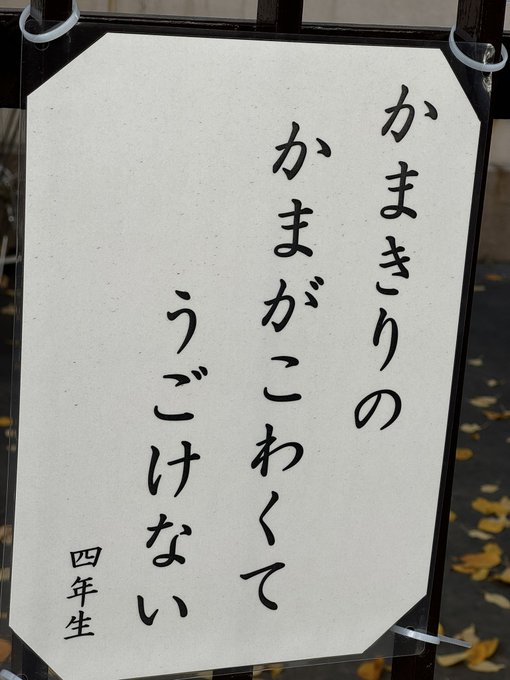 かまきりの
かまがこわくて
うごけない
四年生